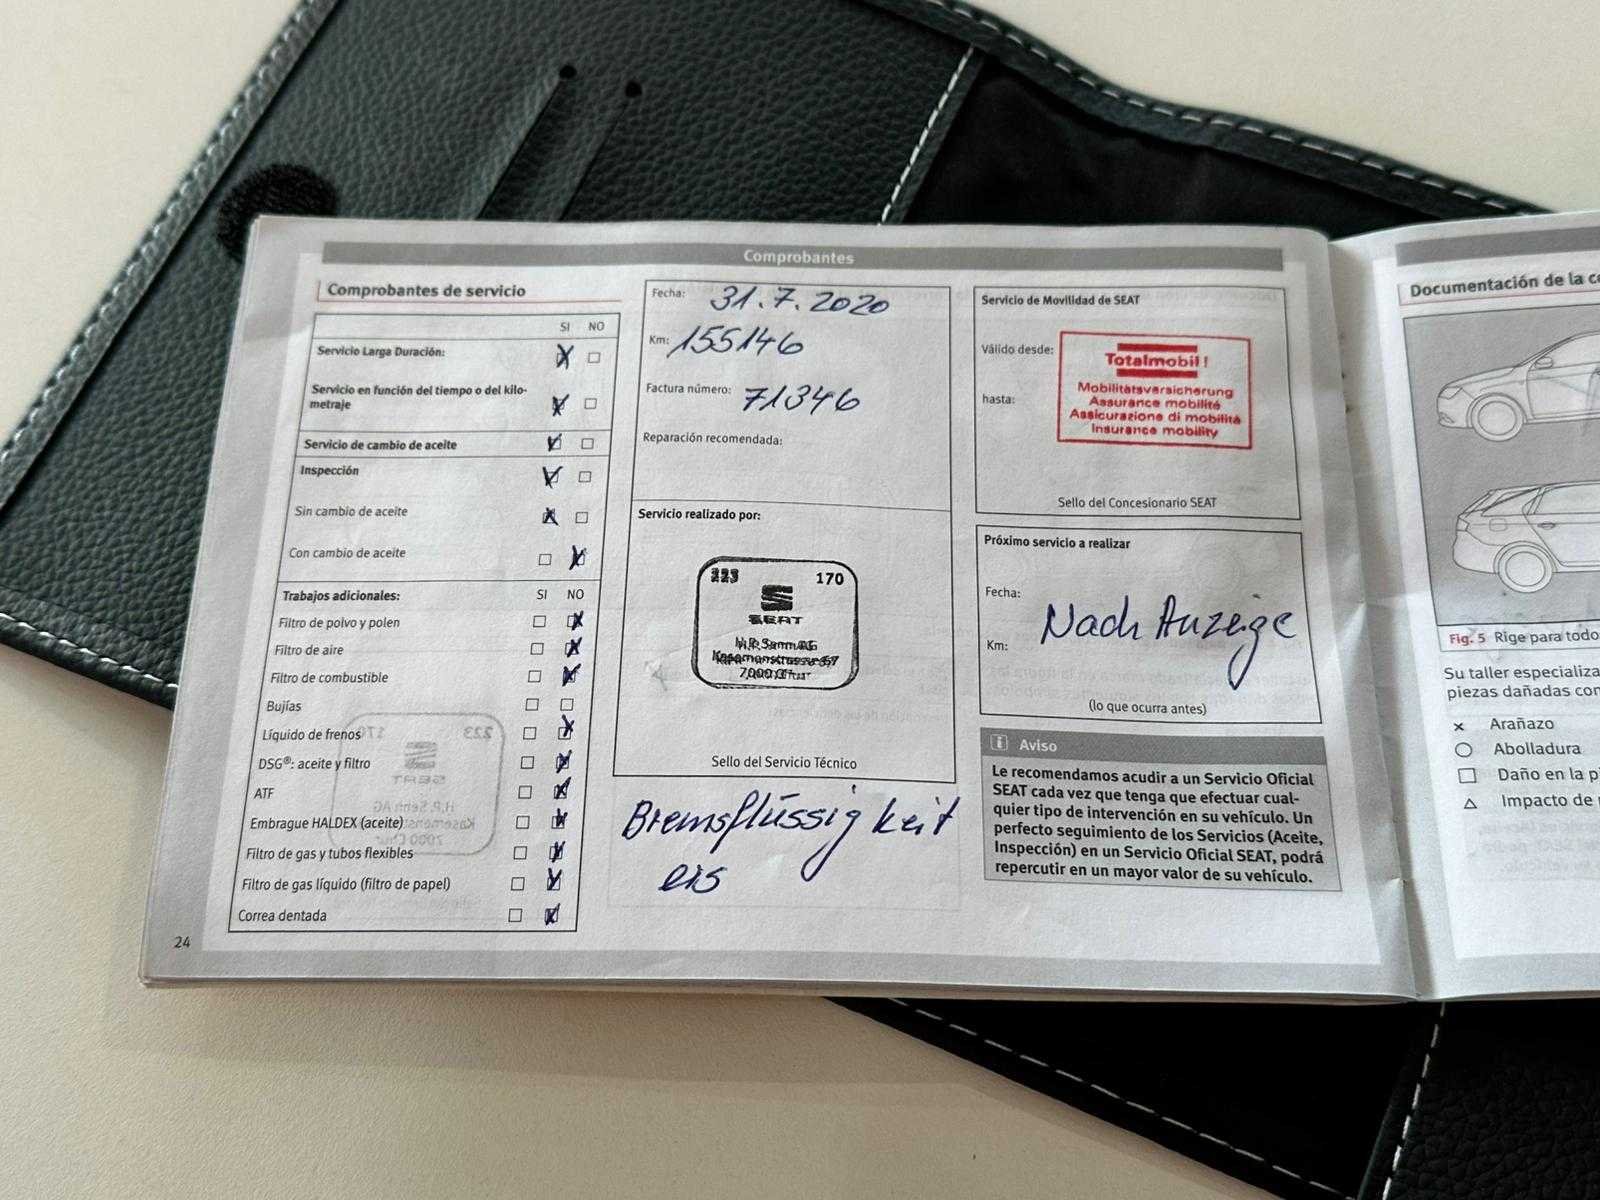 Comprobantes
Comprobantes de servicio
SI NO
Servicio Larga Duración:
Servicio en función del tiempo o del kilo-
metraje
Servicio de cambio de aceite
Inspección
Sin cambio de aceite
Con cambio de aceite
Trabajos adicionales: SI NO
Filtro de polvo y polen
Filtro de aire
Filtro de combustible
Bujías
Líquido de frenos
DSG®: aceite y filtro
ATF
Embrague HALDEX (aceite)
Filtro de gas y tubos flexibles
Filtro de gas líquido (filtro de papel)
Correa dentada
24
Fecha: 31.7.2020
Km: 155146
Factura número: 71346
Reparación recomendada:
Servicio realizado por:
223 170
SEAT
H.P. Senn AG
7000 Chur
Sello del Servicio Técnico
Bremsflüssigkeit
ers
Servicio de Movilidad de SEAT
Válido desde:
hasta:
Totalmobil!
Mobilitätsversicherung
Assurance mobilité
Assicurazione di mobilità
Insurance mobility
Sello del Concesionario SEAT
Próximo servicio a realizar
Fecha:
Km:
Nach Anzeige
(lo que ocurra antes)
Aviso
Le recomendamos acudir a un Servicio Oficial
SEAT cada vez que tenga que efectuar cual-
quier tipo de intervención en su vehículo. Un
perfecto seguimiento de los Servicios (Aceite,
Inspección) en un Servicio Oficial SEAT, podrá
repercutir en un mayor valor de su vehículo.
Documentación de la
Fig. 5 Rige para todo
Su taller especializa
piezas dañadas con
Arañazo
Abolladura
Daño en la
Impacto de